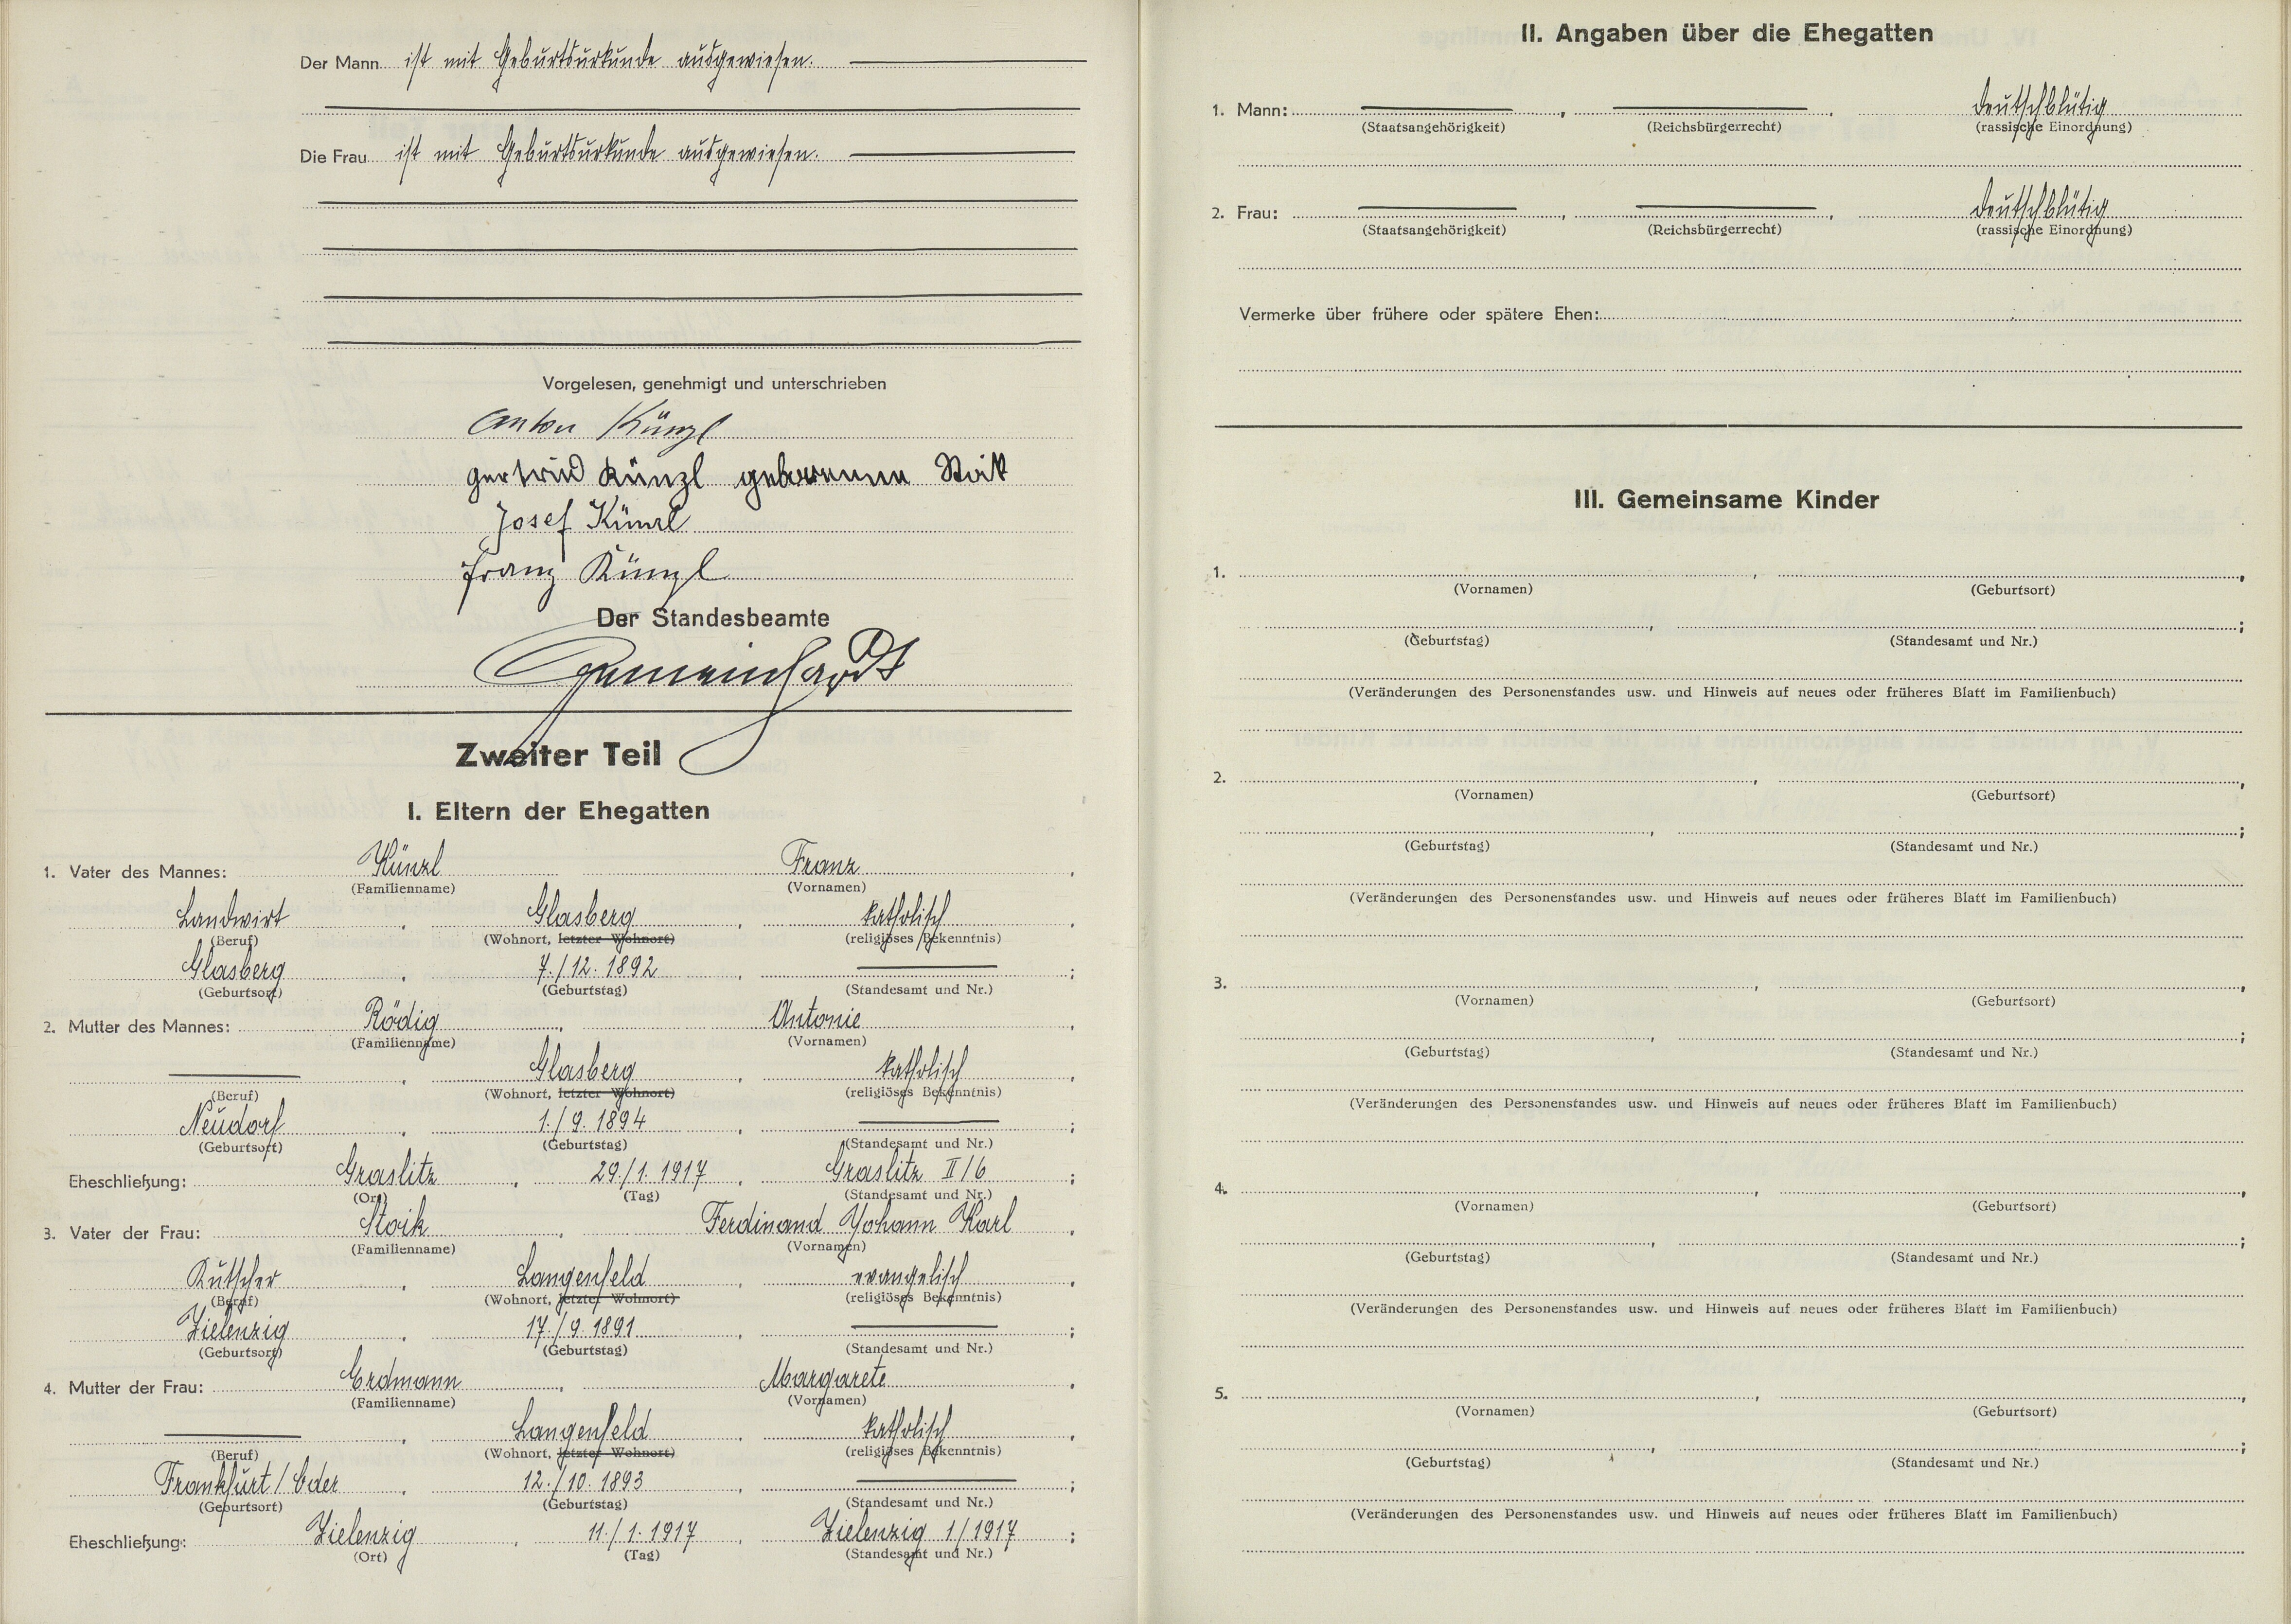 Der Mann ist mit Geburtsurkunde ausgewiesen.
Die Frau ist mit Geburtsurkunde ausgewiesen.
Vorgelesen, genehmigt und unterschrieben
Anton Künzl
Gertrud Künzl geborenen Stoik
Josef Künzl
Franz Künzl
Der Standesbeamte
Gemeinhardt
Zweiter Teil
I. Eltern der Ehegatten
1. Vater des Mannes: Künzl Franz,
(Familienname) (Vornamen)
Landwirt, Glasberg, katholisch,
(Beruf) (Wohnort, letzter Wohnort) (religiöses Bekenntnis)
Glasberg, 7./12. 1892, ;
(Geburtsort) (Geburtstag) (Standesamt und Nr.)
2. Mutter des Mannes: Rödig, Antonie,
(Familienname) (Vornamen)
, Glasberg, katholisch,
(Beruf) (Wohnort, letzter Wohnort) (religiöses Bekenntnis)
Neudorf, 1./9. 1894, ;
(Geburtsort) (Geburtstag) (Standesamt und Nr.)
Eheschließung: Graslitz, 29./1. 1917, Graslitz II/6;
(Ort) (Tag) (Standesamt und Nr.)
3. Vater der Frau: Stoik, Ferdinand Johann Karl,
(Familienname) (Vornamen)
Kutscher, Langenfeld, evangelisch,
(Beruf) (Wohnort, letzter Wohnort) (religiöses Bekenntnis)
Zielenzig, 17./9. 1891, ;
(Geburtsort) (Geburtstag) (Standesamt und Nr.)
4. Mutter der Frau: Erdmann, Margarete,
(Familienname) (Vornamen)
, Langenfeld, katholisch,
(Beruf) (Wohnort, letzter Wohnort) (religiöses Bekenntnis)
Frankfurt/Oder, 12./10. 1893, ;
(Geburtsort) (Geburtstag) (Standesamt und Nr.)
Eheschließung: Zielenzig, 11./1. 1917, Zielenzig 1/1917;
(Ort) (Tag) (Standesamt und Nr.)
II. Angaben über die Ehegatten
1. Mann: , , deutschblütig
(Staatsangehörigkeit) (Reichsbürgerrecht) (rassische Einordnung)
2. Frau: , , deutschblütig
(Staatsangehörigkeit) (Reichsbürgerrecht) (rassische Einordnung)
Vermerke über frühere oder spätere Ehen:
III. Gemeinsame Kinder
1. , ,
(Vornamen) (Geburtsort)
, ;
(Geburtstag) (Standesamt und Nr.)
(Veränderungen des Personenstandes usw. und Hinweis auf neues oder früheres Blatt im Familienbuch)
2. , ,
(Vornamen) (Geburtsort)
, ;
(Geburtstag) (Standesamt und Nr.)
(Veränderungen des Personenstandes usw. und Hinweis auf neues oder früheres Blatt im Familienbuch)
3. , ,
(Vornamen) (Geburtsort)
, ;
(Geburtstag) (Standesamt und Nr.)
(Veränderungen des Personenstandes usw. und Hinweis auf neues oder früheres Blatt im Familienbuch)
4. , ,
(Vornamen) (Geburtsort)
, ;
(Geburtstag) (Standesamt und Nr.)
(Veränderungen des Personenstandes usw. und Hinweis auf neues oder früheres Blatt im Familienbuch)
5. , ,
(Vornamen) (Geburtsort)
, ;
(Geburtstag) (Standesamt und Nr.)
(Veränderungen des Personenstandes usw. und Hinweis auf neues oder früheres Blatt im Familienbuch)